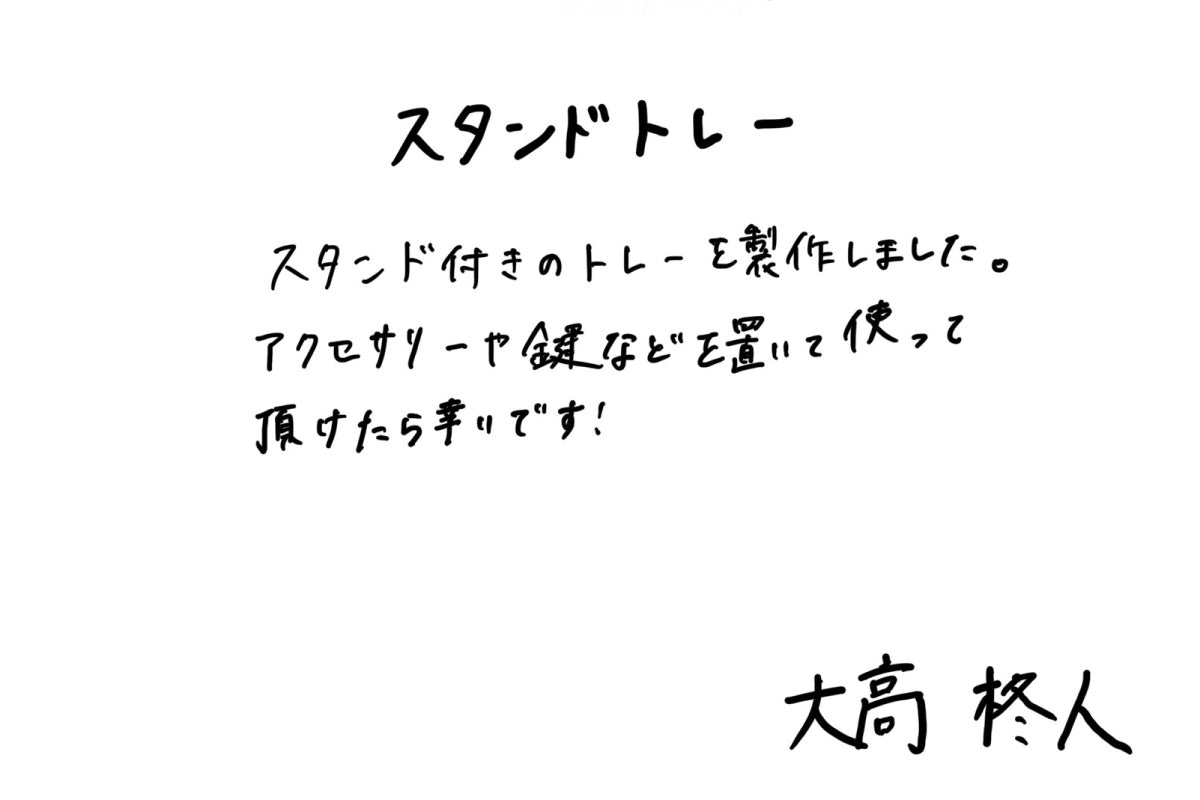 スタンドトレー
スタンド付きのトレーを製作しました。
アクセサリーや鍵などを置いて使って
頂けたら幸いです!
大高 柊人